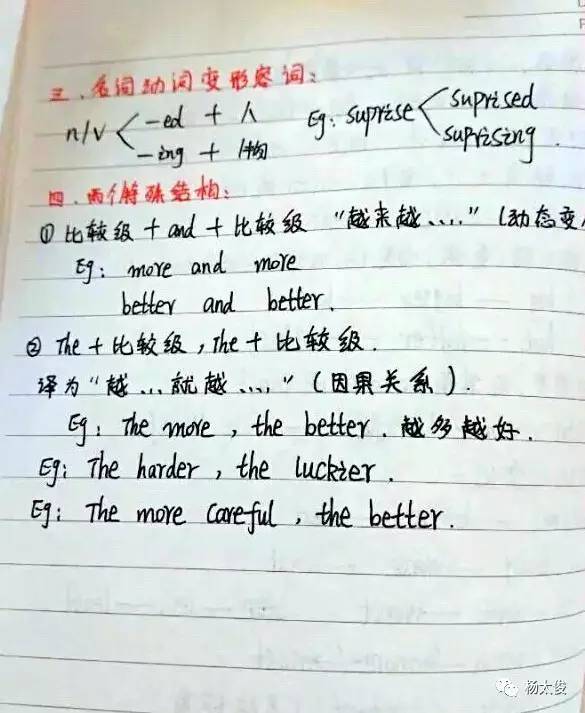 三、名词动词变形容词:
n/v -ed + 人 Eg: suprise suprised
-ing + 物 suprising.
四、两个特殊结构:
① 比较级 + and + 比较级 “越来越....” (动态变
Eg: more and more
better and better.
② The + 比较级, the + 比较级.
译为“越...就越....” (因果关系).
Eg: The more, the better. 越多越好.
Eg: The harder, the luckier.
Eg: The more careful, the better.
杨太俊